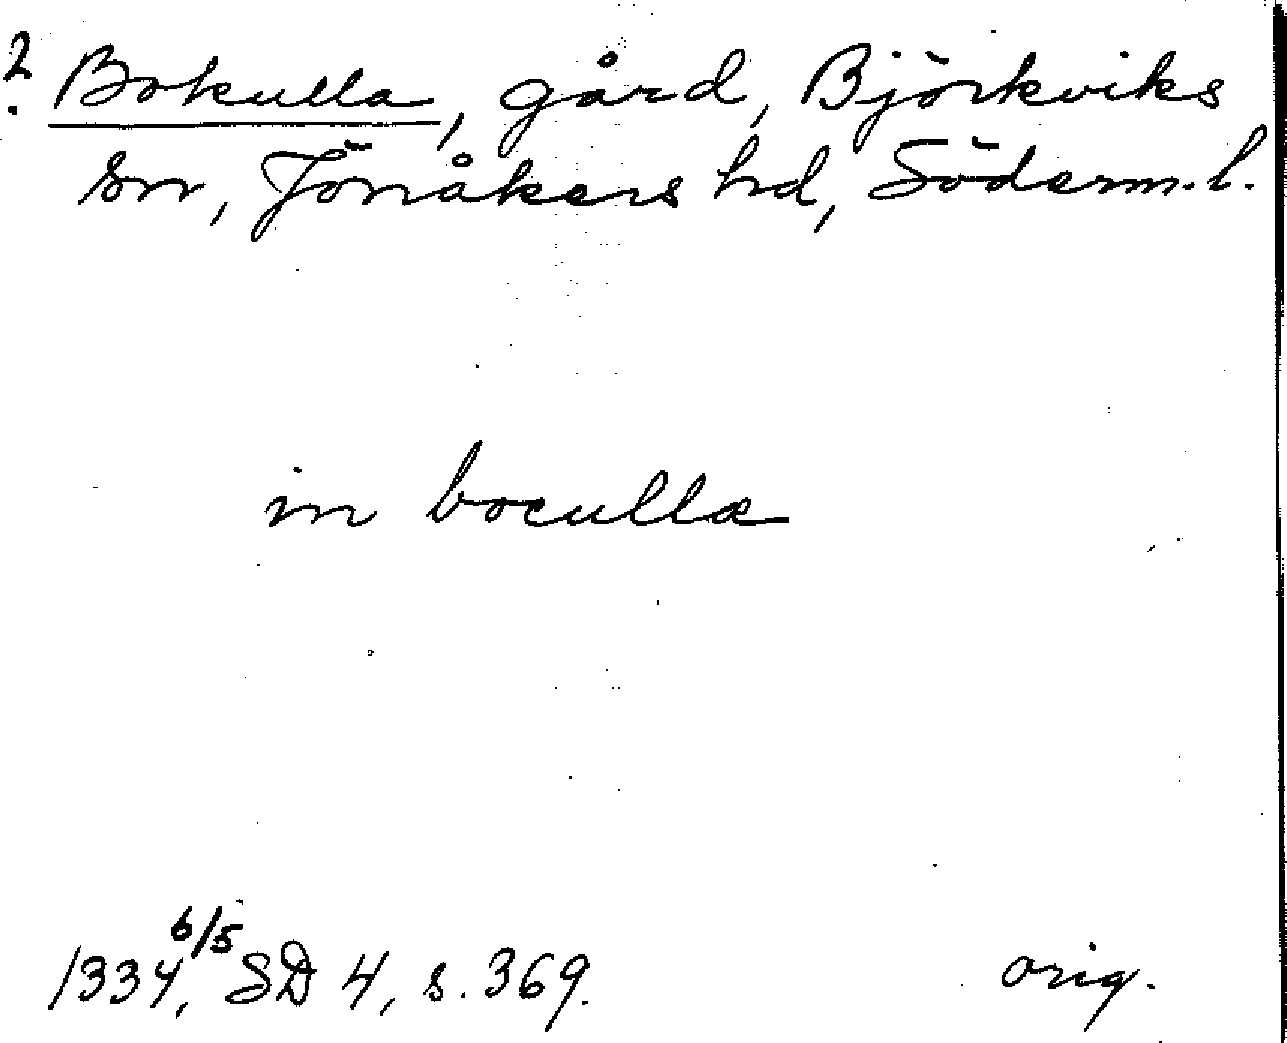 ? Bokulla, gård, Björkviks
sn, Jönåkers hd, Söderm. l.
in boculla
1334 6/5, SD 4, s. 369. orig.